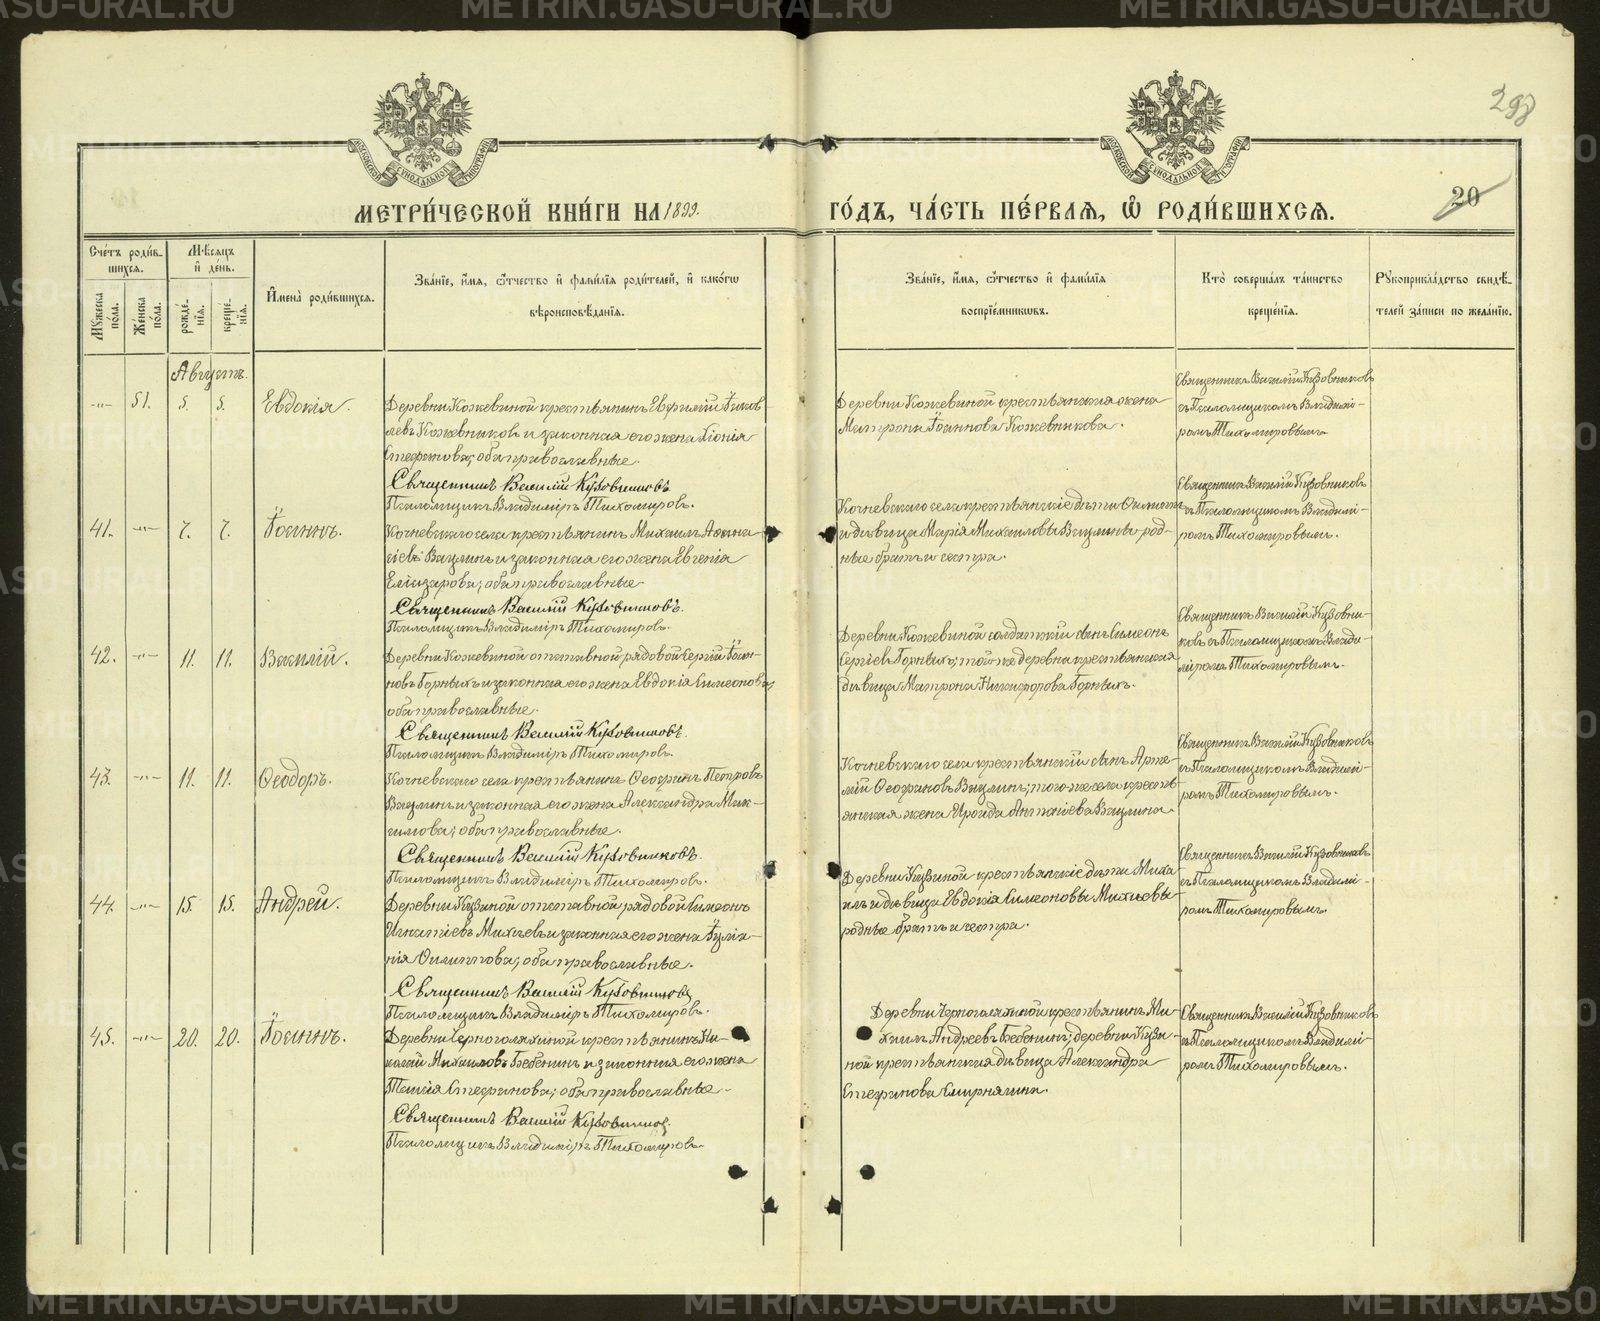 METRIKI.GASU-URAL.RU
298
МОСКОВСКОЙ СѴНОДАЛЬНОЙ ТИПОГРАФІИ
МОСКОВСКОЙ СѴНОДАЛЬНОЙ ТИПОГРАФІИ
20
МЕТРИ́ЧЕСКОЙ КНИ́ГИ НА 1899. ГО́ДЪ, ЧА́СТЬ ПЕ́РВАЯ, Ѡ҆ РОДИ́ВШИХСЯ.
Сче́тъ роди́в-
шихся.
Мꙋ́жеска по́ла.
Же́нска по́ла.
Мѣ́сяцъ и҆ де́нь.
рожде́-
нїя.
креще́-
нїя.
И҆мена̀ роди́вшихся.
Зва́нїе, и҆́мя, ѻ҆́тчество и҆ фами́лїя роди́телей, и҆ како́гѡ
вѣроисповѣ́данїя.
Зва́нїе, и҆́мя, ѻ҆́тчество и҆ фами́лїя
воспрїе́мникѡвъ.
Кто̀ соверша́лъ та́инство
креще́нїя.
Рꙋкоприкла́дство свидѣ́-
телей за́писи по жела́нїю.
Августъ.
-"- 51. 5. 5. Евдокія.
Деревни Кожевиной крестьянинъ Евфимій Іаков-
левъ Кожевниковъ и законная его жена Хіонія
Стефанова; оба православные.
Священникъ Василій Кузовниковъ
Псаломщикъ Владиміръ Тихомировъ.
Деревни Кожевиной крестьянская жена
Матрона Іоаннова Кожевникова.
Священникъ Василій Кузовниковъ
съ Псаломщикомъ Владимі-
ромъ Тихомировымъ.
41. -"- 7. 7. Іоаннъ.
Кочневскаго села крестьянинъ Михаилъ Аѳана-
сіевъ Вацлинъ и законная его жена Евгенія
Елиазарова; оба православные.
Священникъ Василій Кузовниковъ.
Псаломщикъ Владиміръ Тихомировъ.
Кочневскаго села крестьянскіе дѣти
и дѣвица Марія Михаиловы Вацлины род-
ные братъ и сестра.
Священникъ Василій Кузовниковъ
съ Псаломщикомъ Владимі-
ромъ Тихомировымъ.
42. -"- 11. 11. Василій.
Деревни Кожевиной отставной рядовой Сергій Іоан-
новъ Горныхъ и законная его жена Евдокія Симеонова;
оба православные.
Священникъ Василій Кузовниковъ.
Псаломщикъ Владиміръ Тихомировъ.
Деревни Кожевиной солдатскій сынъ Симеонъ
Сергіевъ Горныхъ; той же деревни крестьянская
дѣвица Матрона Никифорова Горныхъ.
Священникъ Василій Кузовни-
ковъ съ Псаломщикомъ Влади-
міромъ Тихомировымъ.
43. -"- 11. 11. Ѳеодоръ.
Кочневскаго села крестьянинъ Ѳеофанъ Петровъ
Вацлинъ и законная его жена Александра Мак-
симова; оба православные.
Священникъ Василій Кузовниковъ.
Псаломщикъ Владиміръ Тихомировъ.
Кочневскаго села крестьянскій сынъ Арте-
мій Ѳеофановъ Вацлинъ; того же села кресть-
янская жена Ираида Антоніева Вацлина.
Священникъ Василій Кузовниковъ
съ Псаломщикомъ Владимі-
ромъ Тихомировымъ.
44. -"- 15. 15. Андрей.
Деревни Кузиной отставной рядовой Симеонъ
Игнатіевъ Михѣевъ и законная его жена Іуліа-
нія Филиппова; оба православные.
Священникъ Василій Кузовниковъ
Псаломщикъ Владиміръ Тихомировъ.
Деревни Кузиной крестьянскіе дѣти Миха-
илъ и дѣвица Евдокія Симеоновы Михѣевы
родные братъ и сестра.
Священникъ Василій Кузовниковъ
съ Псаломщикомъ Владимі-
ромъ Тихомировымъ.
45. -"- 20. 20. Іоаннъ.
Деревни Черноголяхиной крестьянинъ Ни-
колай Михаиловъ Бабенинъ и законная его жена
Таисія Стефанова; оба православные.
Священникъ Василій Кузовниковъ.
Псаломщикъ Владиміръ Тихомировъ.
Деревни Черноголяхиной крестьянинъ Ми-
хаилъ Андреевъ Бабенинъ; деревни Кузи-
ной крестьянская дѣвица Александра
Стефанова Смирнягина.
Священникъ Василій Кузовниковъ
съ Псаломщикомъ Владимі-
ромъ Тихомировымъ.
METRIKI.GASU-URAL.RU